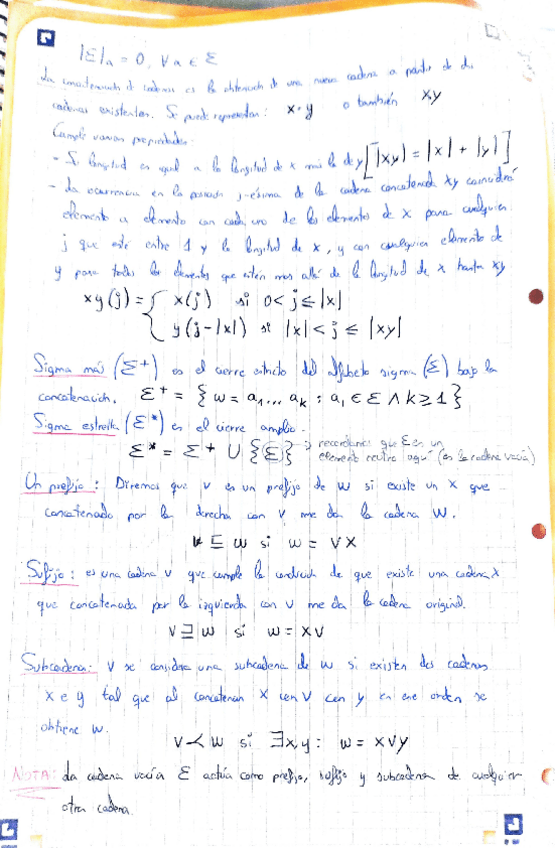 |ε|a = 0, ∀ a ∈ Σ
La concatenación de cadenas es la obtención de una nueva cadena a partir de dos
cadenas existentes. Se puede representar: x·y o también xy
Cumple varias propiedades:
- Su longitud es igual a la longitud de x más la de y [|xy| = |x| + |y|]
- La ocurrencia en la posición j-ésima de la cadena concatenada xy coincidirá
elemento a elemento con cada uno de los elementos de x para cualquier
j que esté entre 1 y la longitud de x, y con cualquier elemento de
y para todos los elementos que estén mas allá de la longitud de x hasta xy
xy(j) = { x(j) si 0 < j ≤ |x|
y(j-|x|) si |x| < j ≤ |xy|
Sigma más (Σ⁺) es el cierre estricto del alfabeto sigma (Σ) bajo la
concatenación. Σ⁺ = { w = a₁... aₖ : aᵢ ∈ Σ ∧ k ≥ 1 }
Sigma estrella (Σ*) es el cierre amplio.
Σ* = Σ⁺ ∪ {ε} → recordamos que ε es un
elemento neutro aquí (es la cadena vacía)
Un prefijo: Diremos que v es un prefijo de w si existe un x que
concatenado por la derecha con v me da la cadena w.
v ⊑ w si w = vx
Sufijo: es una cadena v que cumple la condición de que existe una cadena x
que concatenada por la izquierda con v me da la cadena original.
v ⊒ w si w = xv
Subcadena: v se considera una subcadena de w si existen dos cadenas
x e y tal que al concatenar x con v con y en ese orden se
obtiene w.
v ≺ w si ∃x,y : w = xvy
NOTA: La cadena vacía ε actúa como prefijo, sufijo y subcadena de cualquier
otra cadena.